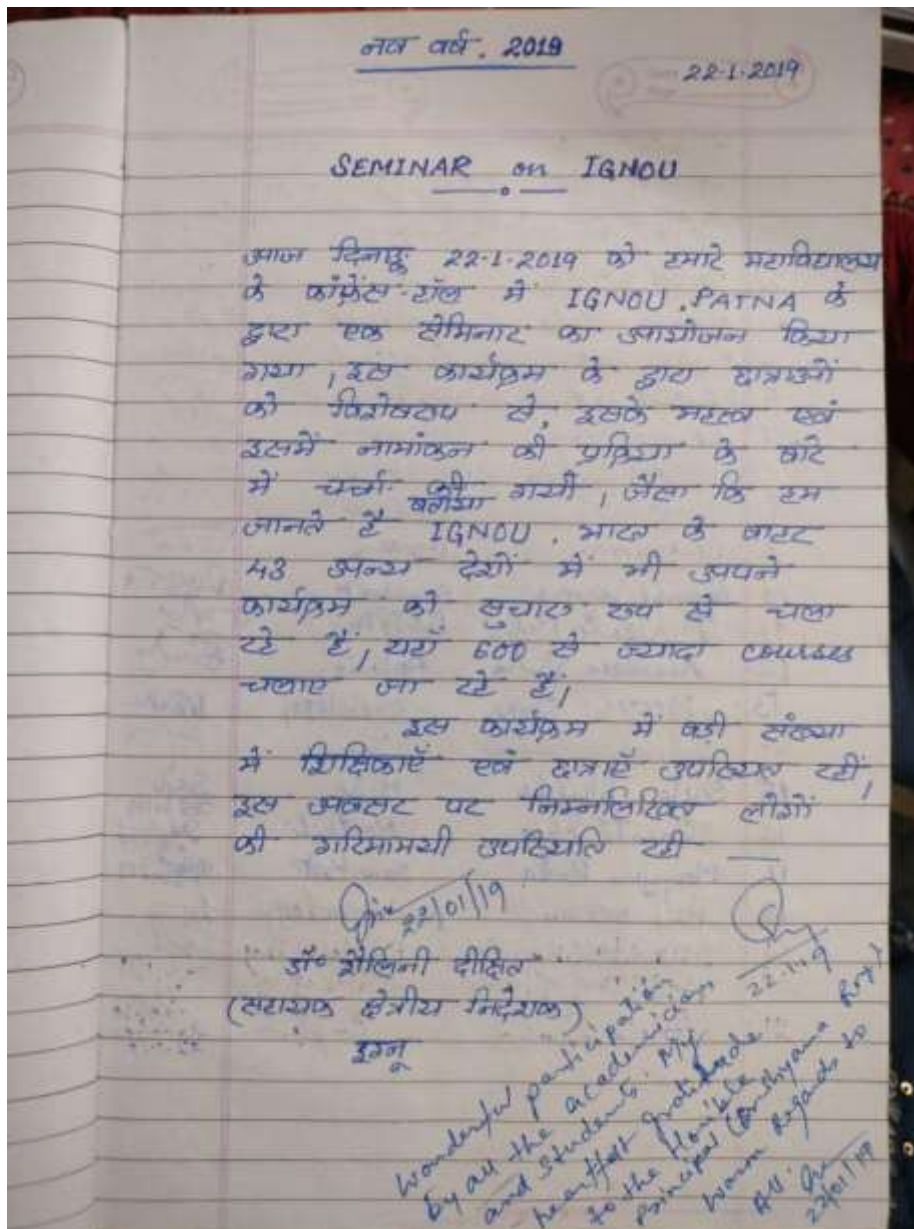 नव वर्ष. 2019
22-1-2019
SEMINAR on IGNOU
आज दिनाङ्क 22-1-2019 को हमारे महाविद्यालय
के कांफ्रेंस-हॉल में IGNOU, PATNA के
द्वारा एक सेमिनार का आयोजन किया
गया, इस कार्यक्रम के द्वारा छात्राओं
को विशेषरूप से, इसके महत्व एवं
इसमें नामांकन की प्रक्रिया के बारे
में चर्चा की गयी, जैसा कि हम
जानते हैं IGNOU, भारत के बाहर
43 अन्य देशों में भी अपने
कार्यक्रम को सुचारु रूप से चला
रहे हैं, यहाँ 600 से ज्यादा courses
चलाए जा रहे हैं,
इस कार्यक्रम में बड़ी संख्या
में शिक्षिकाएँ एवं छात्राएँ उपस्थित रहीं,
इस अवसर पर निम्नलिखित लोगों
की गरिमामयी उपस्थिति रही
22/01/19
22.1.19
डॉ० शालिनी दीक्षित
(सहायक क्षेत्रीय निदेशक)
इग्नू
Wonderful participation
by all the academicians
and students. My
heartfelt gratitude
to the Hon'ble
principal
Warm Regards to
All.
22/01/19